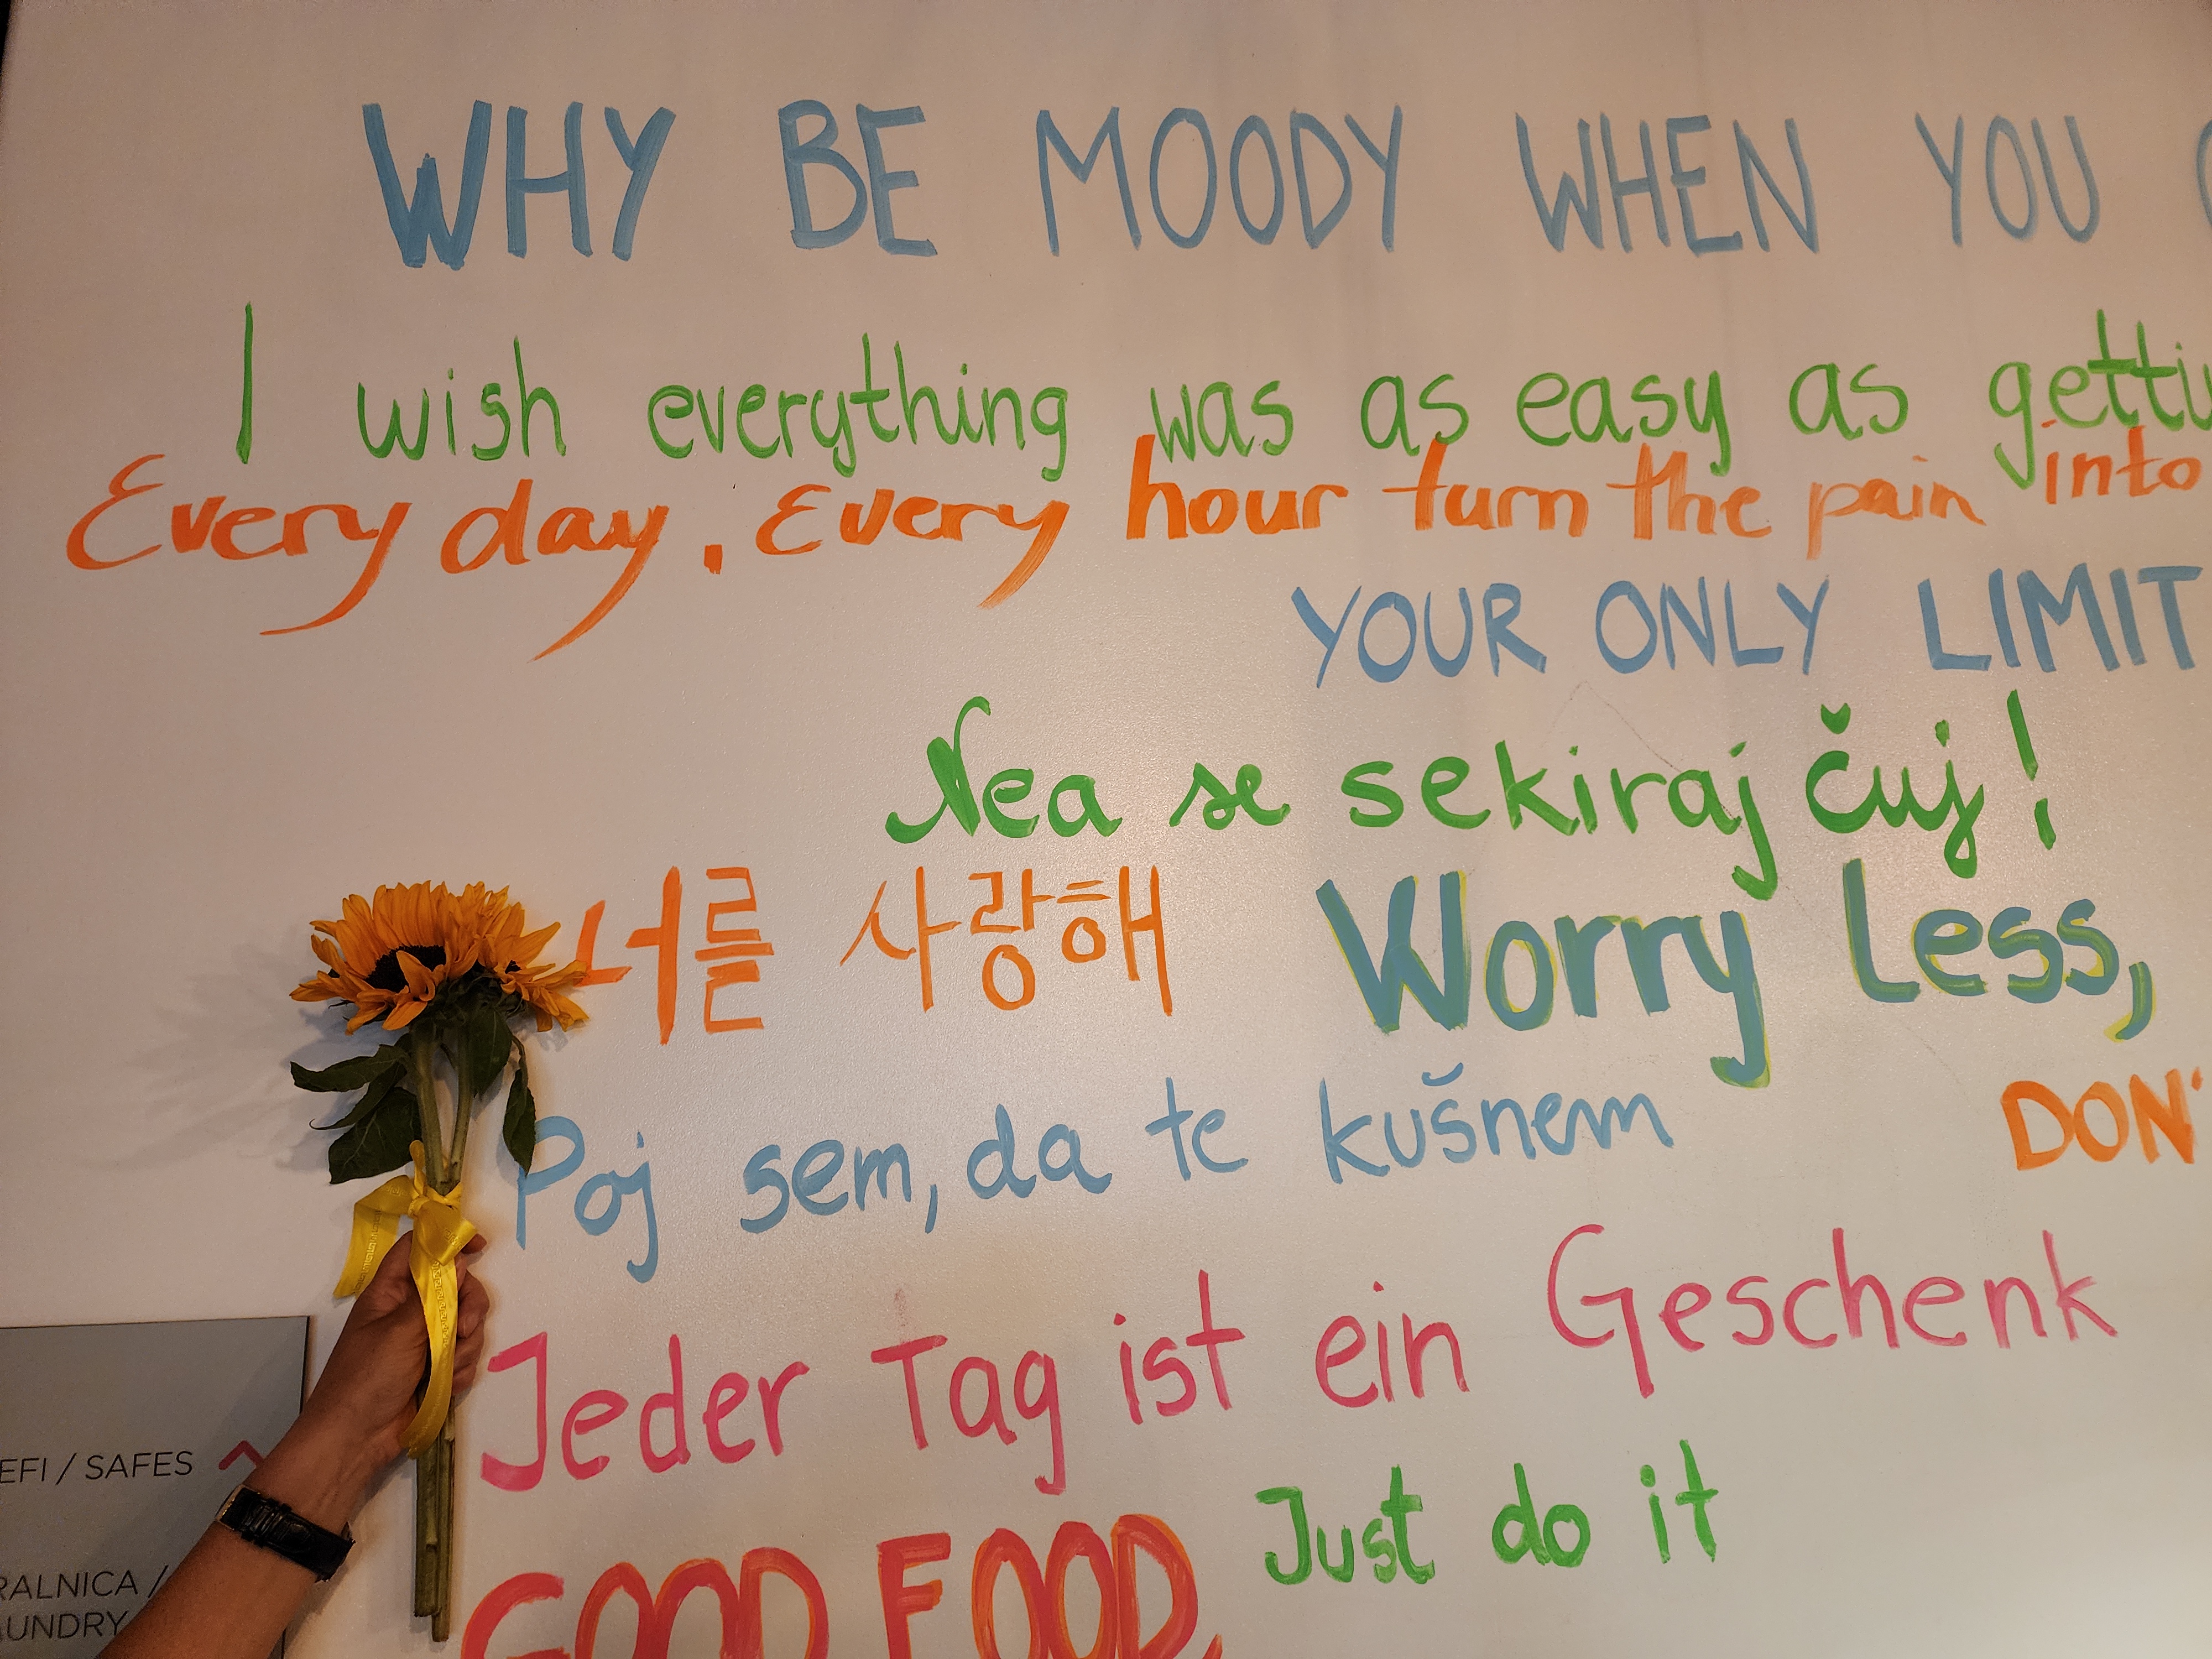 WHY BE MOODY WHEN YOU
I wish everything was as easy as
Every day. Every hour turn the pain into
YOUR ONLY LIMIT
Nea se sekiraj čuj!
너를 사랑해 Worry Less,
Poj sem, da te kušnem
DON'
Jeder Tag ist ein Geschenk
Just do it
GOOD FOOD,
EFI / SAFES
RALNICA /
AUNDRY